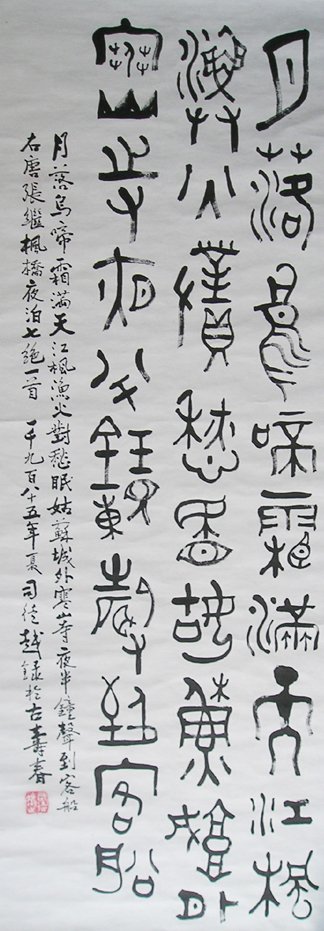 月落烏啼霜滿天江楓
漁火對愁眠姑蘇城外
寒山寺夜半鐘聲到客船
月落烏啼霜滿天江楓漁火對愁眠姑蘇城外寒山寺夜半鐘聲到客船
右唐張繼楓橋夜泊七絕一首 一千九百八十五年夏司徒越録於古壽春